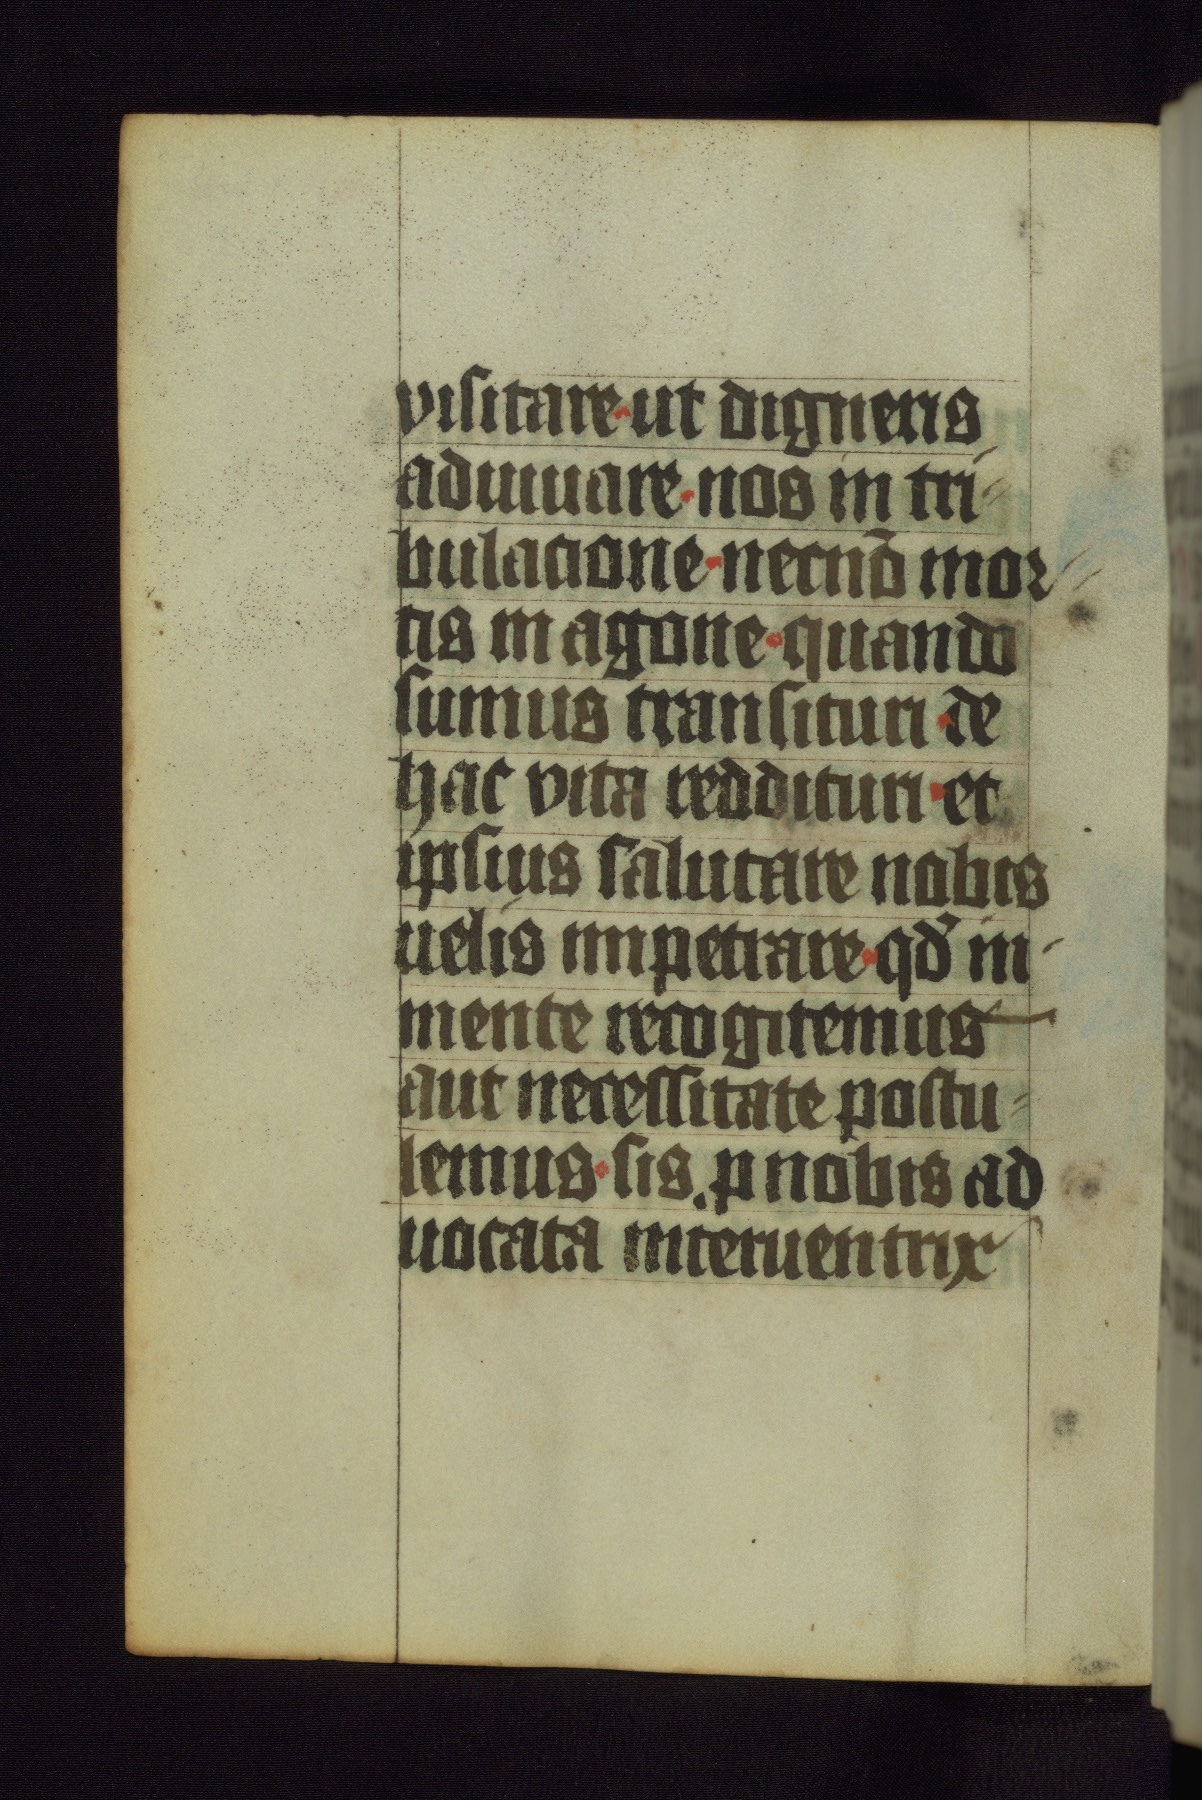 visitare·ut digneris
adiuuare·nos in tri
bulacione·necnō mor
tis in agone·quando
sumus transituri·de
hac vita reddituri·et
ipsius salutare nobis
uelis impetrare·qd' in
mente recogitemus
aut necessitate postu
lemus·sis .p nobis ad
uocata interuentrix